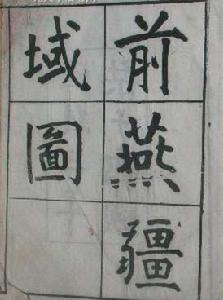 前燕疆
域圖